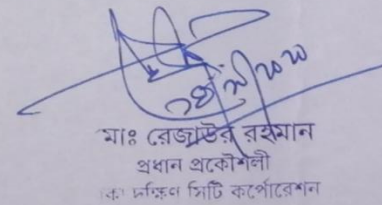 মাঃ রেজাউর রহমান
প্রধান প্রকৌশলী
দক্ষিণ সিটি কর্পোরেশন